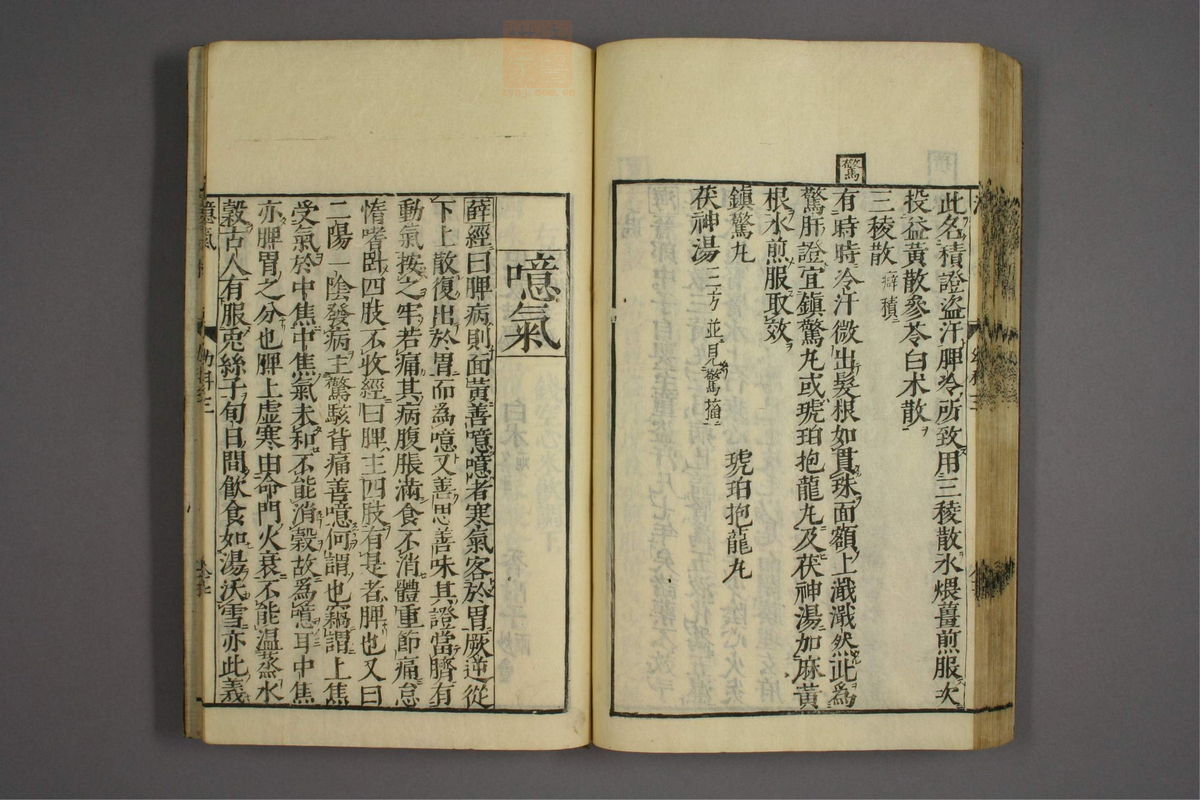 此名積證盜汗脾冷所致用三稜散水煨薑煎服次
投益黃散參苓白朮散
三稜散 癖積
驚
有時時冷汗微出髮根如貫珠面額上濈濈然此爲
驚肝證宜鎮驚丸或琥珀抱龍丸及茯神湯加麻黃
根水煎服取效
鎮驚丸 琥珀抱龍丸
茯神湯 三方並見驚搐
噫氣
薛經曰脾病則面黃善噫噫者寒氣客於胃厥逆從
下上散復出於胃而爲噫又善思善味其證當臍有
動氣按之牢若痛其病腹脹滿食不消體重節痛怠
惰嗜臥四肢不收經曰脾主四肢有是者脾也又曰
二陽一陰發病主驚駭背痛善噫何謂也竊謂上焦
受氣於中焦中焦氣未和不能消穀故爲噫耳中焦
亦脾胃之分也脾上虛寒由命門火衰不能温蒸水
穀古人有服兎絲子旬日間飲食如湯沃雪亦此義
噫氣
幼科三